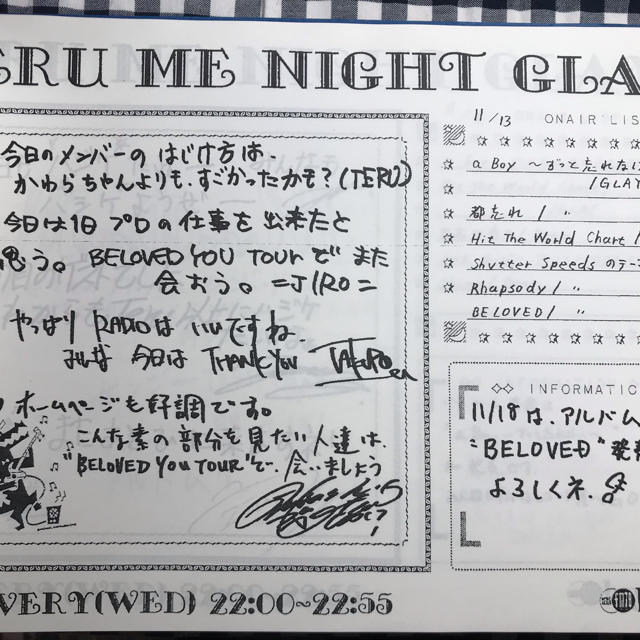 ERU ME NIGHT GLA
今日のメンバーの はじけ方は、
かわらちゃんよりも、すごかったかも？(TERU)
今日は1日 プロの仕事を出来たと
思う。BELOVED YOU TOUR で また
会おう。=JIRO=
やっぱり RADIOは いいですね
みんな 今日は THANK YOU TAKURO
ホームページも好調です。
こんな素の部分を見たい人達は、
"BELOVED YOU TOUR"で、会いましょう
11/13 ONAIR LIS
a Boy ～ずっと忘れな
/GLAY
都忘れ / 〃
Hit The World Chart /
Shutter Speeds のテー
Rhapsody / 〃
BELOVED / 〃
INFORMATIO
11/18は、アルバム
"BELOVED"発
よろしくネ.
VERY(WED) 22:00~22:55